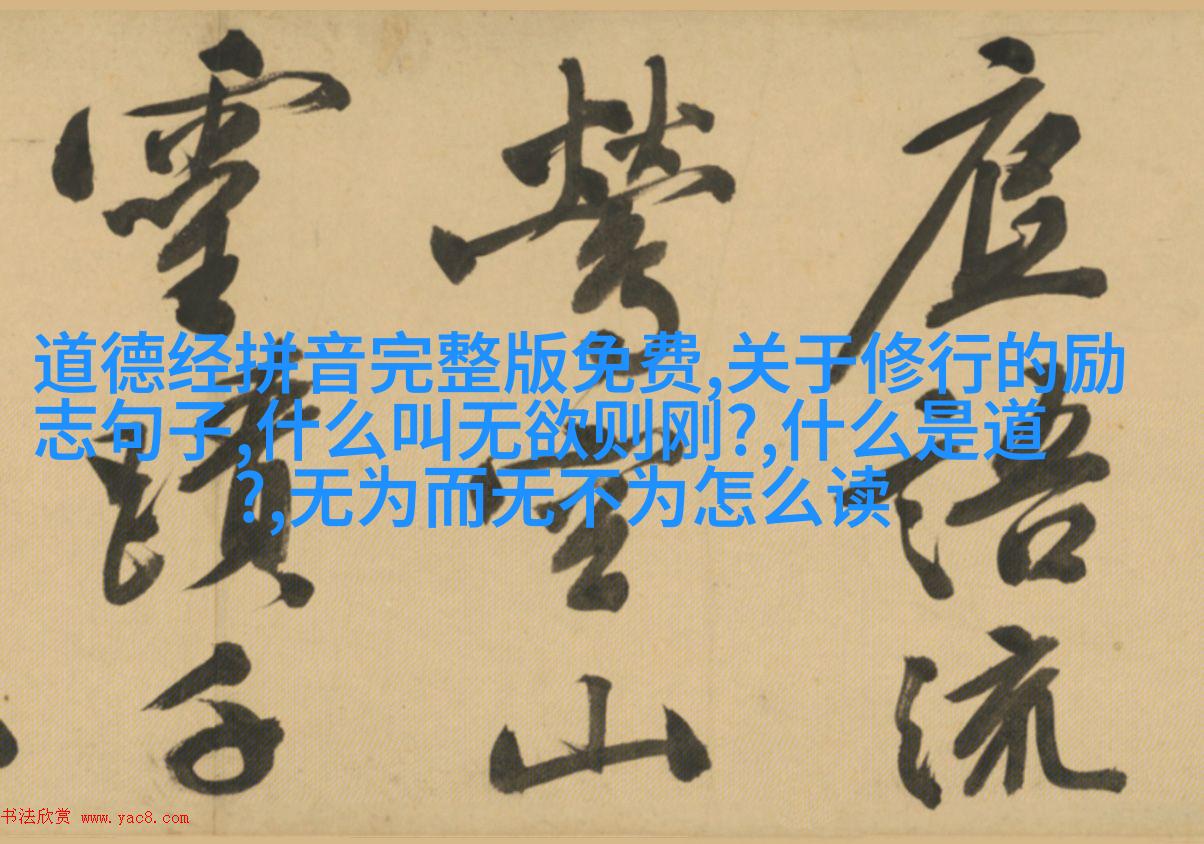 語流
山
道德经拼音完整版免费,关于修行的励
志句子,什么叫无欲则刚?,什么是道
?,无为而无不为怎么读
书法欣赏 www.yac8.com